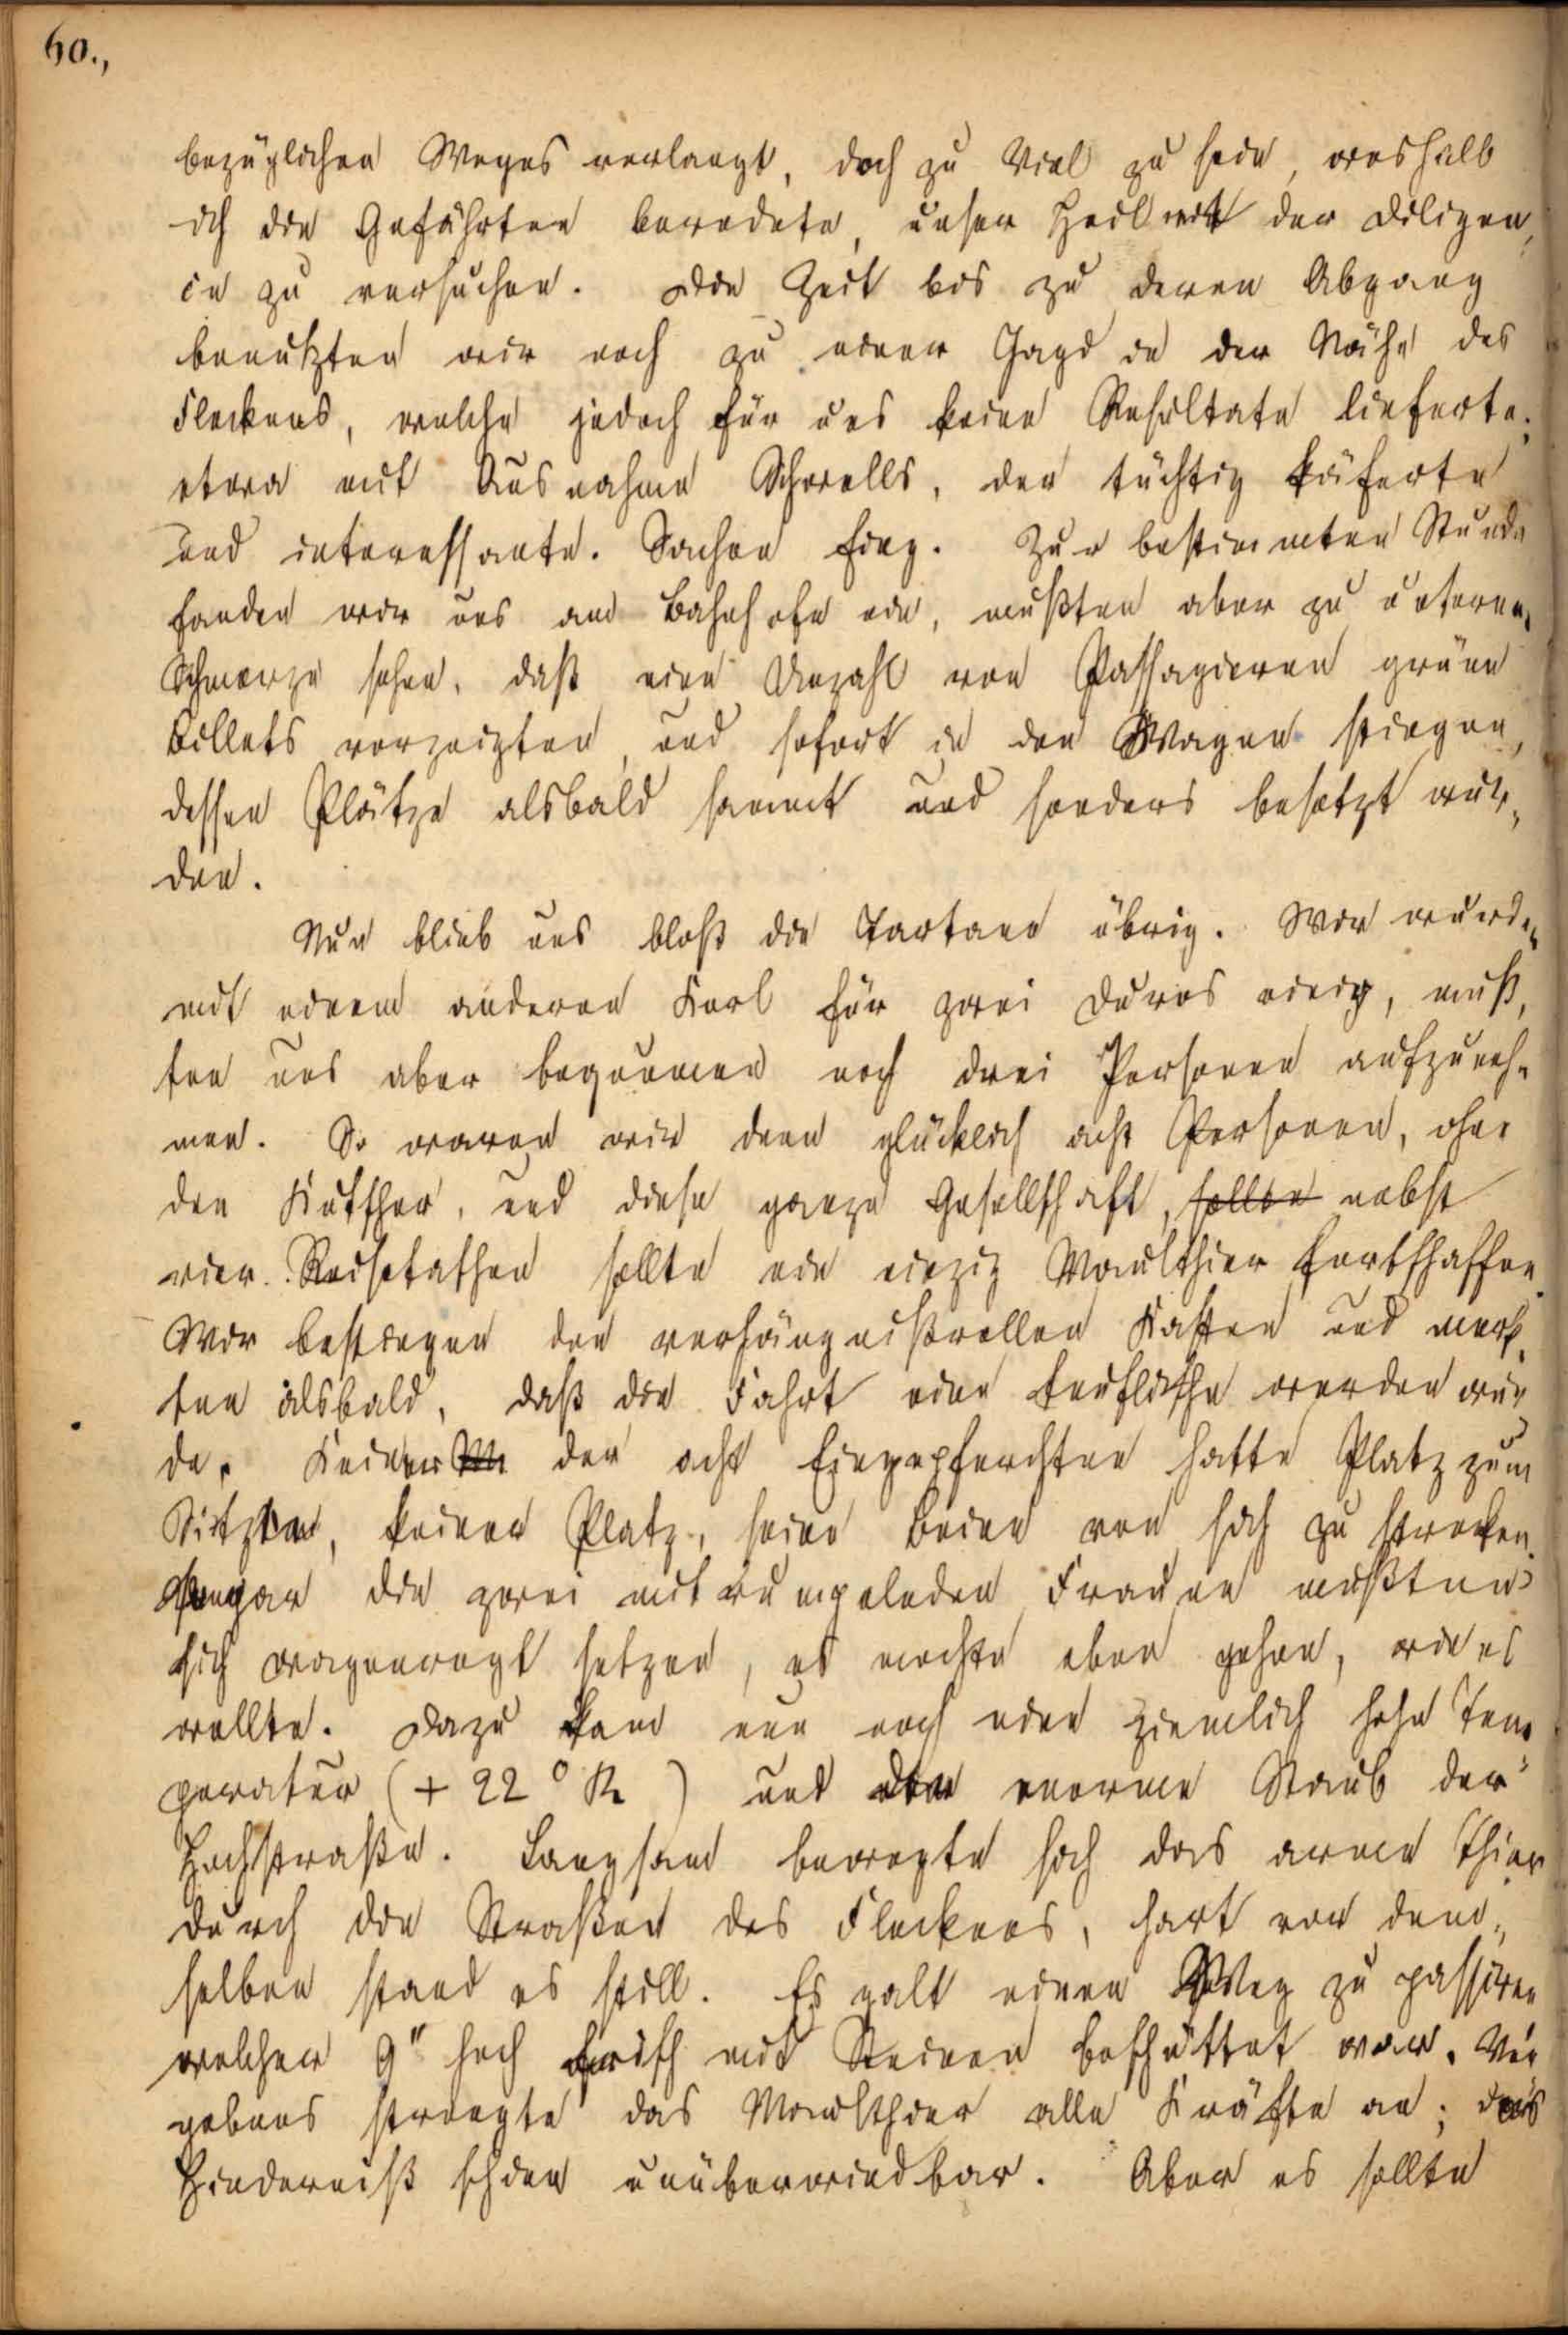 60.,
bezüglichen Weges verlangt, doch zu viel zu sein, weshalb
ich die Gefährten beredete, unser Heil mit der Diligen,
ce zu versuchen. Die Zeit bis zu deren Abgang
benutzten wir noch zu einer Jagd in der Nähe des
Fleckens, welche jedoch für uns keine Resultate lieferte,
etwa mit Ausnahme Schrells, der tüchtig käferte
und interessante Sachen fing. Zur bestimmten Stunde
fanden wir uns am Bahnhofe ein, mußten aber zu unserem
Schmerze sehen, daß eine Unzahl von Passagieren grüne
Billets vorzeigten, und sofort in den Wagen stiegen,
dessen Plätze alsbald sammt und sonders besetzt wur,
den.
Nun blieb uns bloß die Tartane übrig. Wir wurden
mit einem anderen Kerl für zwei Duros einig, muß,
ten uns aber bequemen noch drei Personen aufzuneh,
men. So waren wir denn glücklich acht Personen, ohne
den Kutscher, und diese ganze Gesellschaft, sollte nebst
vier Reisetaschen sollte ein einzig Maulthier fortschaffen.
Wir bestiegen den verhängnißvollen Kasten und merk,
ten alsbald, daß die Fahrt eine teuflische werden wür
de. Keiner der acht Eingepferchten hatte Platz zum
Sitzen, keiner Platz, seine Beine von sich zu strecken.
Sogar die zwei mitrumpelnden Frauen mußten
sich wagenwegt setzen, es mochte eben gehen, wie es
wollte. Dazu kam nun noch eine ziemlich hohe Tem,
peratur (+ 22° R.) und der enorme Staub der
Hochstraße. Langsam bewegte sich das arme Thier
durch die Straßen des Fleckens, hart vor dem,
selben stand es still. Es galt einen Weg zu passiren
welcher 9" hoch frisch mit Steinen beschüttet war. Ver
gebens strengte das Maulthier alle Kräfte an; das
Hinderniß schien unüberwindbar. Aber es sollte